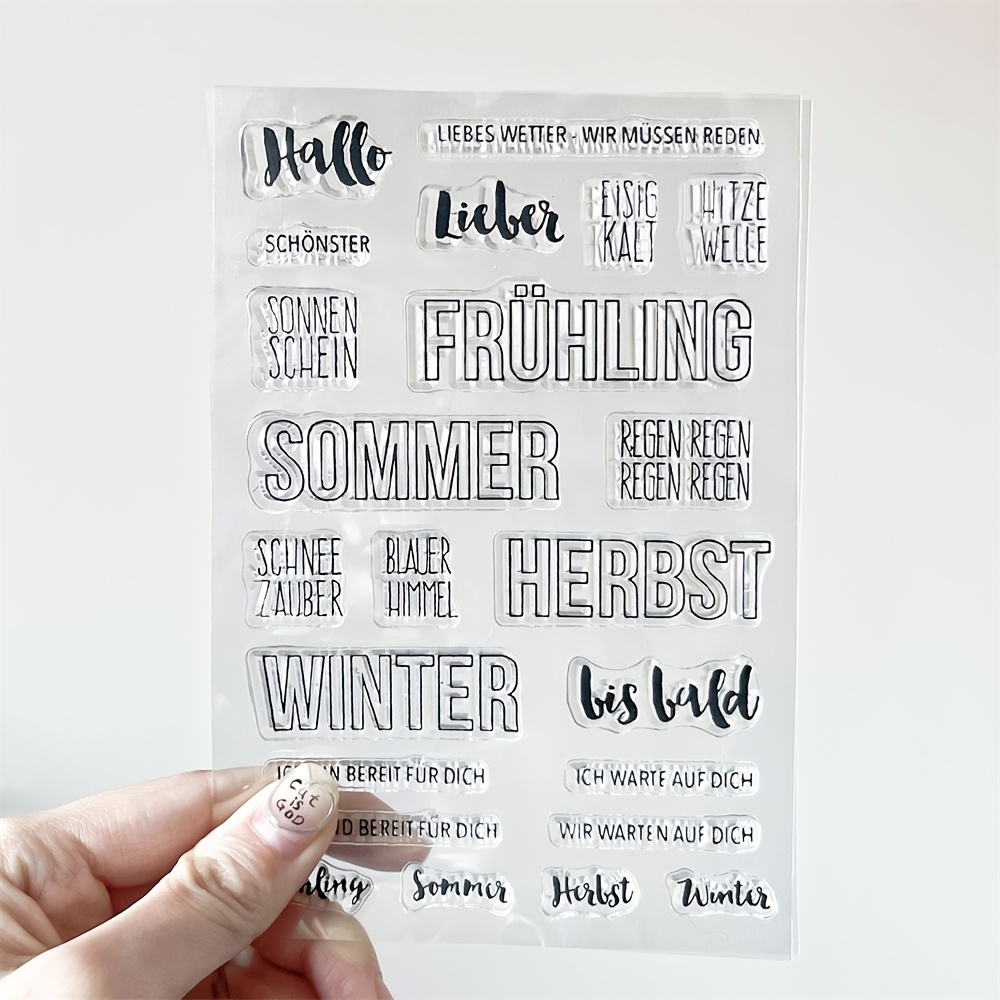 Hallo
LIEBES WETTER - WIR MÜSSEN REDEN
Lieber
EISIG
KALT
HITZE
WELLE
SCHÖNSTER
SONNEN
SCHEIN
FRÜHLING
SOMMER
REGEN REGEN
REGEN REGEN
SCHNEE
ZAUBER
BLAUER
HIMMEL
HERBST
WINTER
bis bald
BEREIT FÜR DICH
ICH WARTE AUF DICH
cat
is
GOD
BEREIT FÜR DICH
WIR WARTEN AUF DICH
Sommer
Herbst
Winter